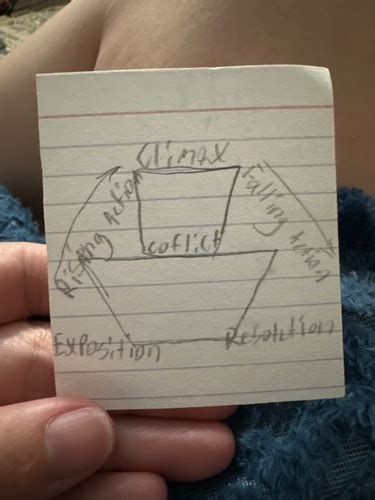 Climax
Rising Action
Falling Action
coflict
Exposition
Resolution